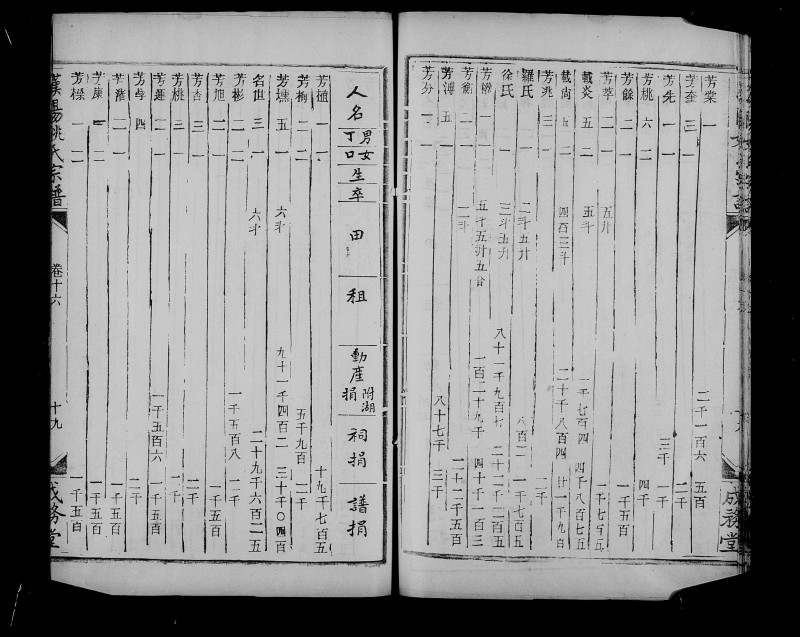 芳棠 一 二千一百六 五百
芳奎 三 一 二千
芳先 一 一 三千
芳桃 六 二 四千
芳餘 二 一 一千五百
芳萃 二 一 五升 二千七百五
載炎 五 二 五斗 一千七百四 四千八百七五
載尚 五 二 四百三斗 二十千八百四 廿一千九百
芳兆 三 一 二千
羅氏 二斗五升 八百二 一千七百五
徐氏 三斗五升 八十一千九百七 二十二千二百五
芳 一 五十五升五合 一百二十九千 四十千一百三
芳 二 一 二斗 二十二千五百
芳溥 五 一 八十七千 三千
芳芬 一 一
人名 男丁 女口 生 卒 田 租 動產捐 附湖 祠捐 譜捐
芳植 一 一 十九千七百五
芳梅 二 二 五千九百 二千
芳 五 一 六斗 九十一千四百二 三十千〇四百
名世 三 一 六斗 二十九千六百二五
芳彬 二 一 一千五百八 二千
芳旭 二 一 一千五百
芳杏 三 一 二千
芳桃 三 一 二千
芳 二 一 一千五百六 一千五百
芳 四 二千
芳 二 一 一千五百
芳康 一 二 一千五百
芳樑 一 二 一千五百
漢陽姚氏宗譜 卷十六 十九 成務堂